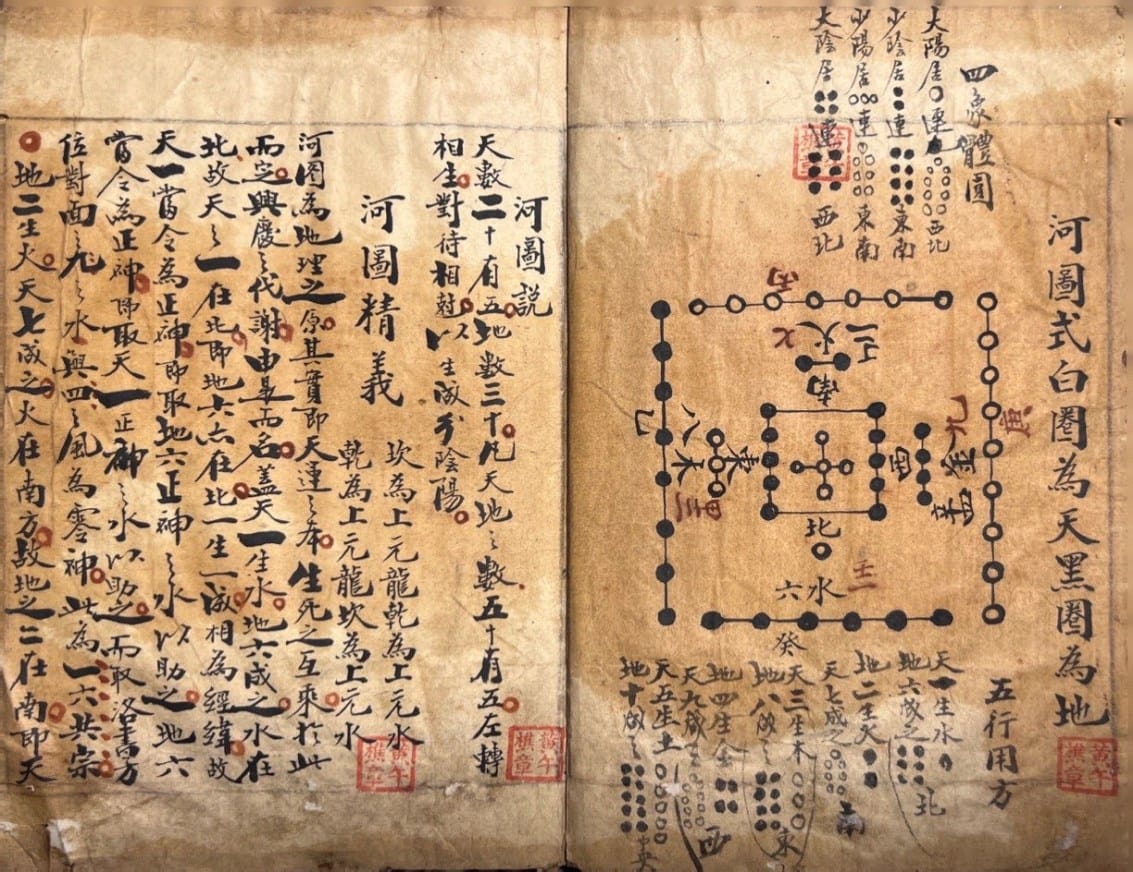 河圖式白圈為天黑圈為地
四象體圓
太陽居 連 西北
少陰居 連 東南
少陽居 連 東南
太陰居 連 西北
丙
七
火
二
南
乙
八
木
東
三
甲
西
金
九
庚
辛
北
六水一
壬
癸
五行用方
天一生水
地六成之 北
地二生火
天七成之 南
天三生木
地八成之 東
地四生金
天九成之 西
天五生土
地十成之 央
河圖説
天數二十有五地數三十凡天地之數五十有五左轉
相生對待相尅以生成分陰陽
河圖精義
坎為上元龍乾為上元水
乾為上元龍坎為上元水
河圖為地理之原其實即天運之本生死之互乘於此
而定興廢之代謝由是而名蓋天一生水地六成之水在
北故天之一在北即地六亦在北一生一成相為經緯故
天一當令為正神即取地六正神之水以助之地六
當令為正神即取天一正神之水以助之而取洛書方
位對面之九之水與四之風為零神此為一六共宗
地二生火天七成之火在南方故地之二在南即天
黃午樵章